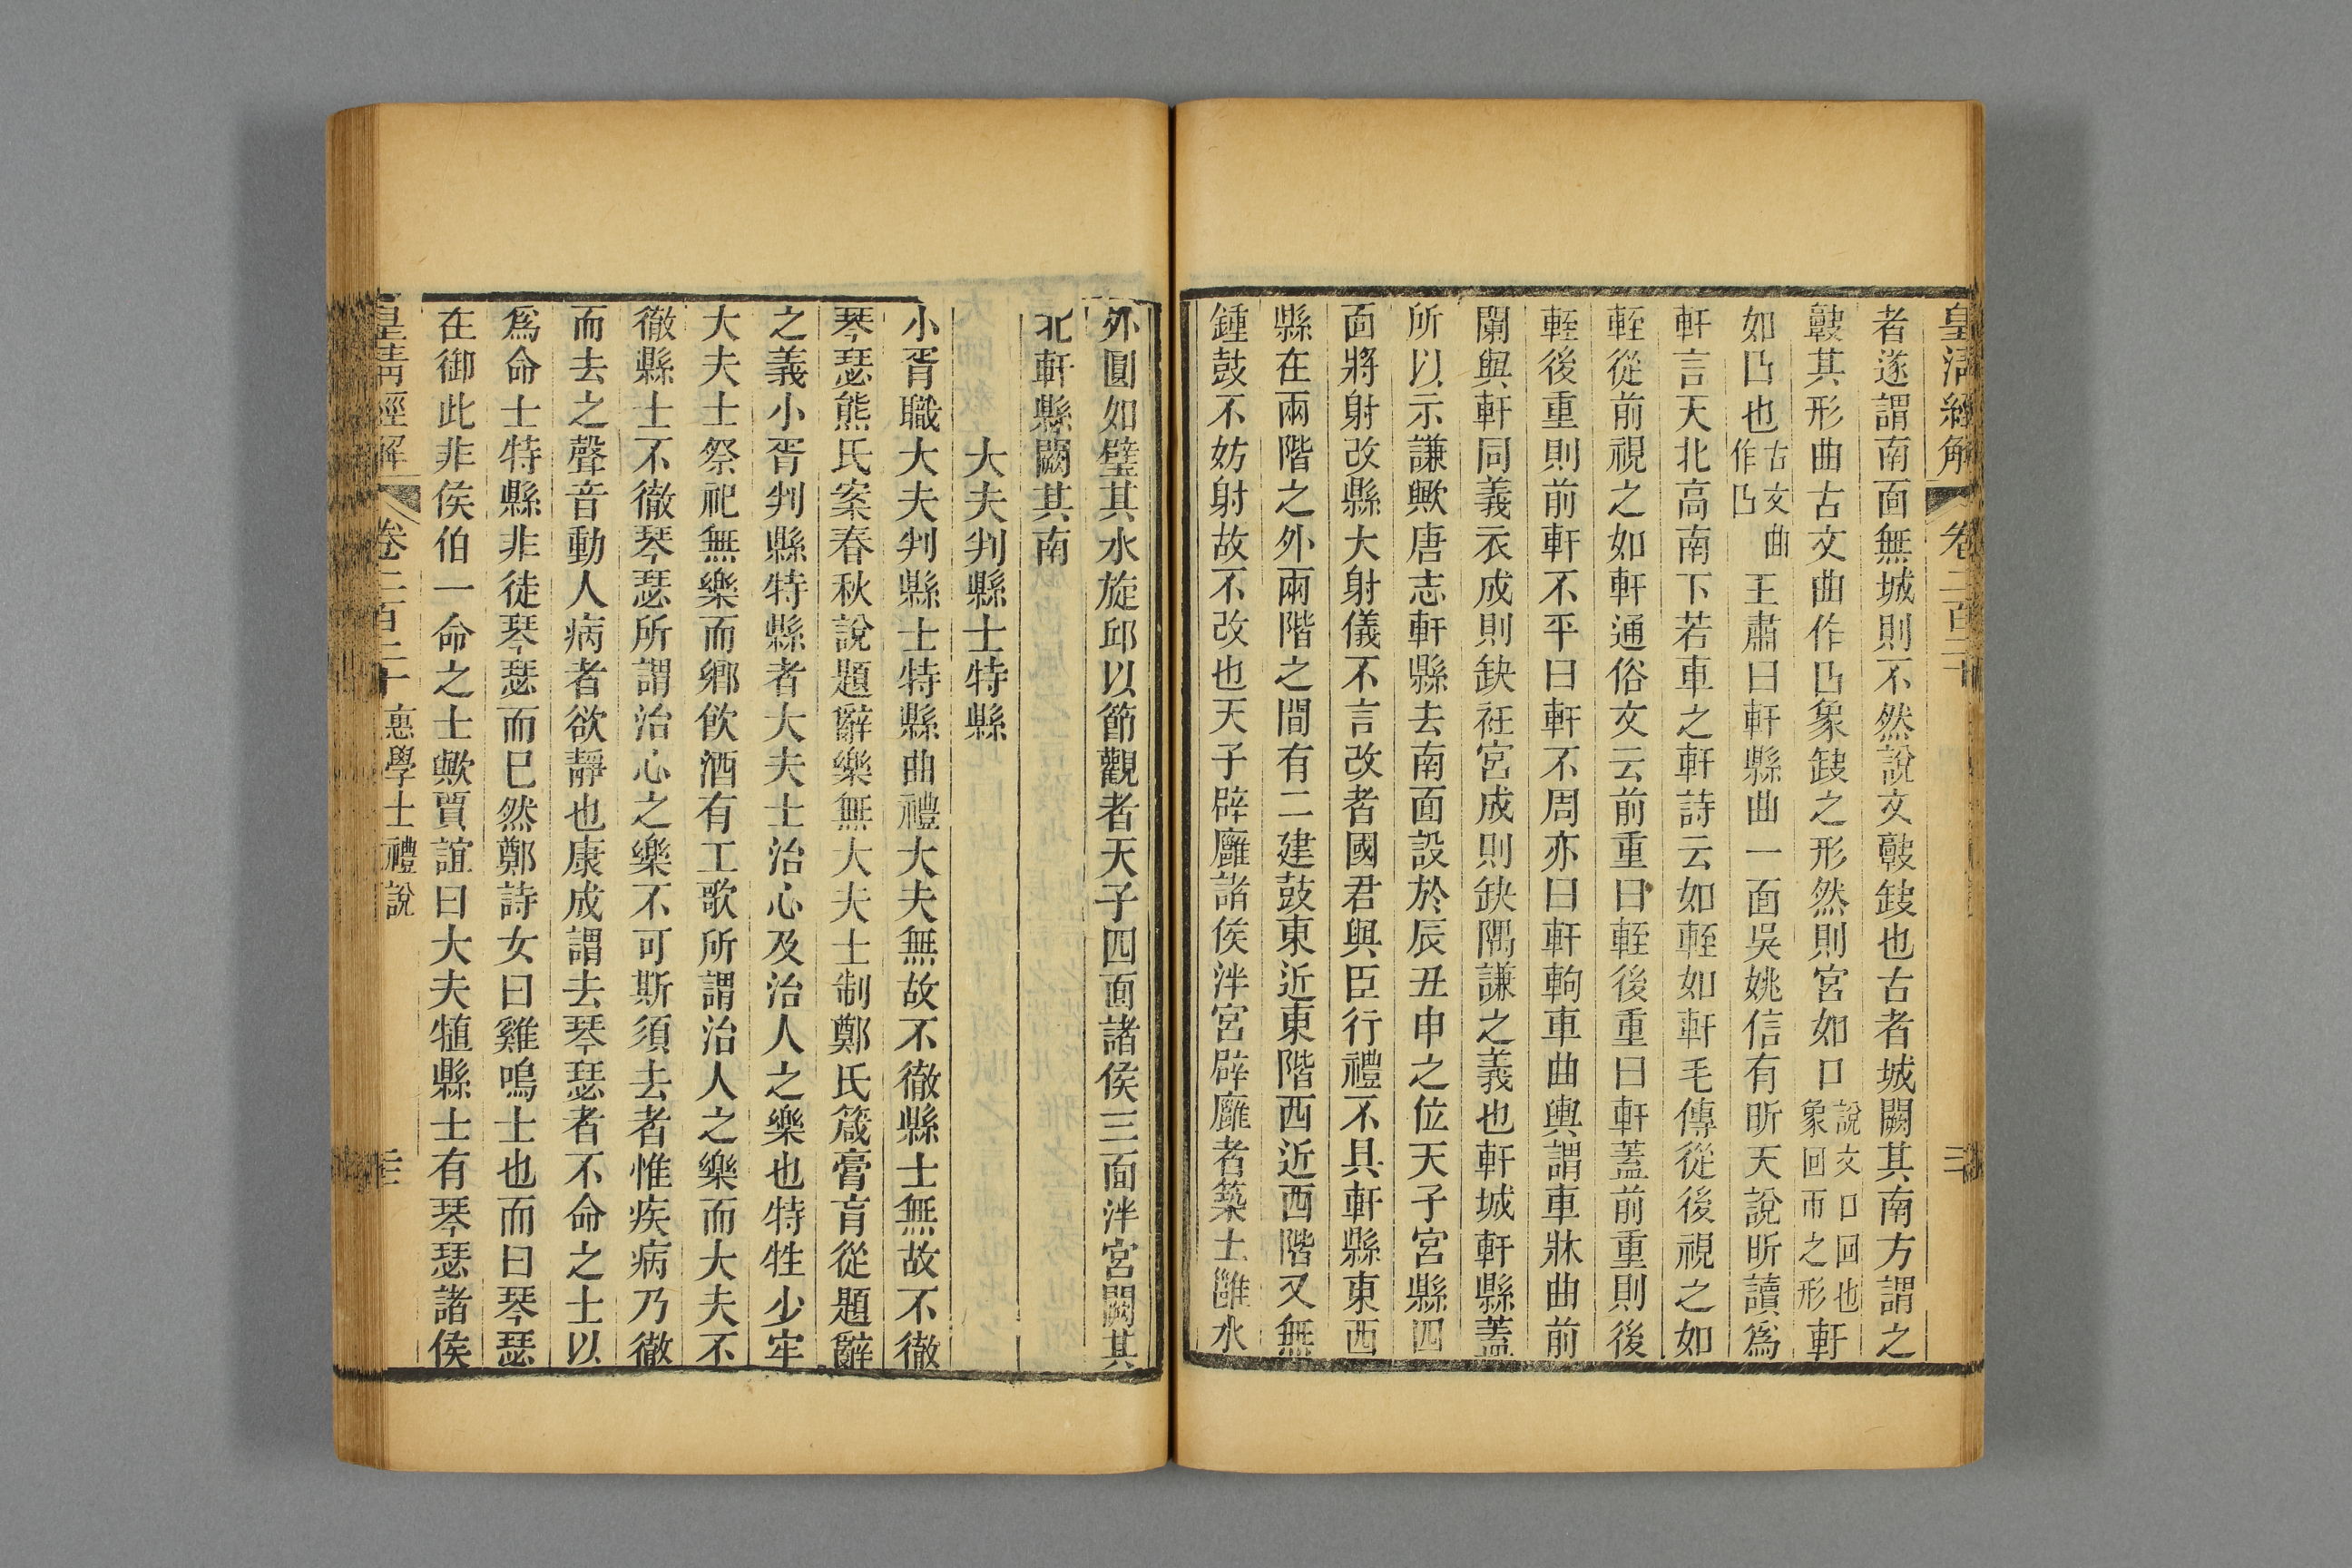 皇清經解 卷二百二十 三
者遂謂南面無城則不然說文𩫏缺也古者城闕其南方謂之
𩫏其形曲古文曲作𠃊象缺之形然則宮如口說文口回也象回帀之形軒
如𠃊也古文曲作𠃊王肅曰軒縣曲一面吳姚信有昕天說昕讀爲
軒言天北高南下若車之軒詩云如輊如軒毛傳從後視之如
輊從前視之如軒通俗文云前重曰輊後重曰軒蓋前重則後
輊後重則前軒不平曰軒不周亦曰軒軥車曲輿謂車牀曲前
闌與軒同義衣成則缺衽宮成則缺隅謙之義也軒城軒縣蓋
所以示謙歟唐志軒縣去南面設於辰丑申之位天子宮縣四
面將射改縣大射儀不言改者國君與臣行禮不具軒縣東西
縣在兩階之外兩階之間有二建鼓東近東階西近西階又無
鍾鼓不妨射故不改也天子辟廱諸侯泮宮辟廱者築土雝水
外圓如璧其水旋邱以節觀者天子四面諸侯三面泮宮闕其
北軒縣闕其南
大夫判縣士特縣
小胥職大夫判縣士特縣曲禮大夫無故不徹縣士無故不徹
琴瑟熊氏案春秋說題辭樂無大夫士制鄭氏箴膏肓從題辭
之義小胥判縣特縣者大夫士治心及治人之樂也特牲少牢
大夫士祭祀無樂而鄉飲酒有工歌所謂治人之樂而大夫不
徹縣士不徹琴瑟所謂治心之樂不可斯須去者惟疾病乃徹
而去之聲音動人病者欲靜也康成謂去琴瑟者不命之士以
爲命士特縣非徒琴瑟而巳然鄭詩女曰雞鳴士也而曰琴瑟
在御此非侯伯一命之士歟賈誼曰大夫犆縣士有琴瑟諸侯
皇清經解 卷二百二十 惠學士禮說